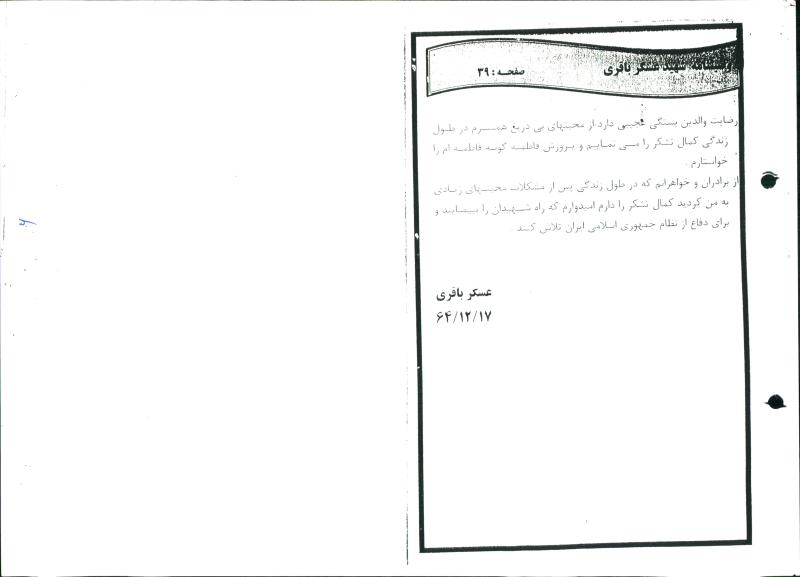 وصیتنامه شهید عسکر باقری
صفحه : ۳۹
رضایت والدین بستگی عجیبی دارد از محبتهای بی دریغ همسرم در طول
زندگی کمال تشکر را می نمایم و پرورش فاطمه گونه فاطمه ام را
خواستارم .
از برادران و خواهرانم که در طول زندگی پس از مشکلات محبتهای زیادی
به من کردید کمال تشکر را دارم امیدوارم که راه شهیدان را بپیمایند و
برای دفاع از نظام جمهوری اسلامی ایران تلاش کنند .
عسکر باقری
۶۴/۱۲/۱۷